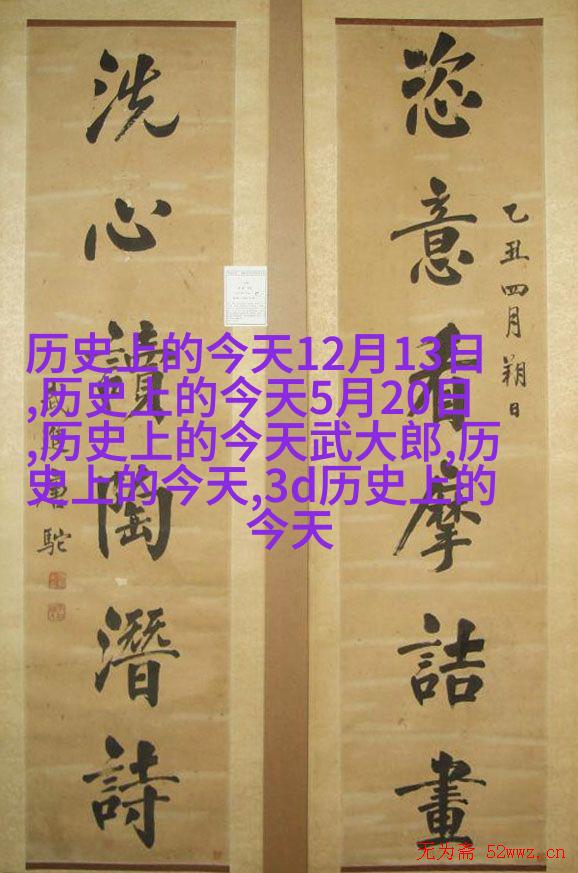 恣意看摩詰畫
乙丑四月朔日
洗心讀陶潛詩
唐駝
历史上的今天12月13日
,历史上的今天5月20日
,历史上的今天武大郎,历
史上的今天,3d历史上的
今天
无为斋 52wwz.cn